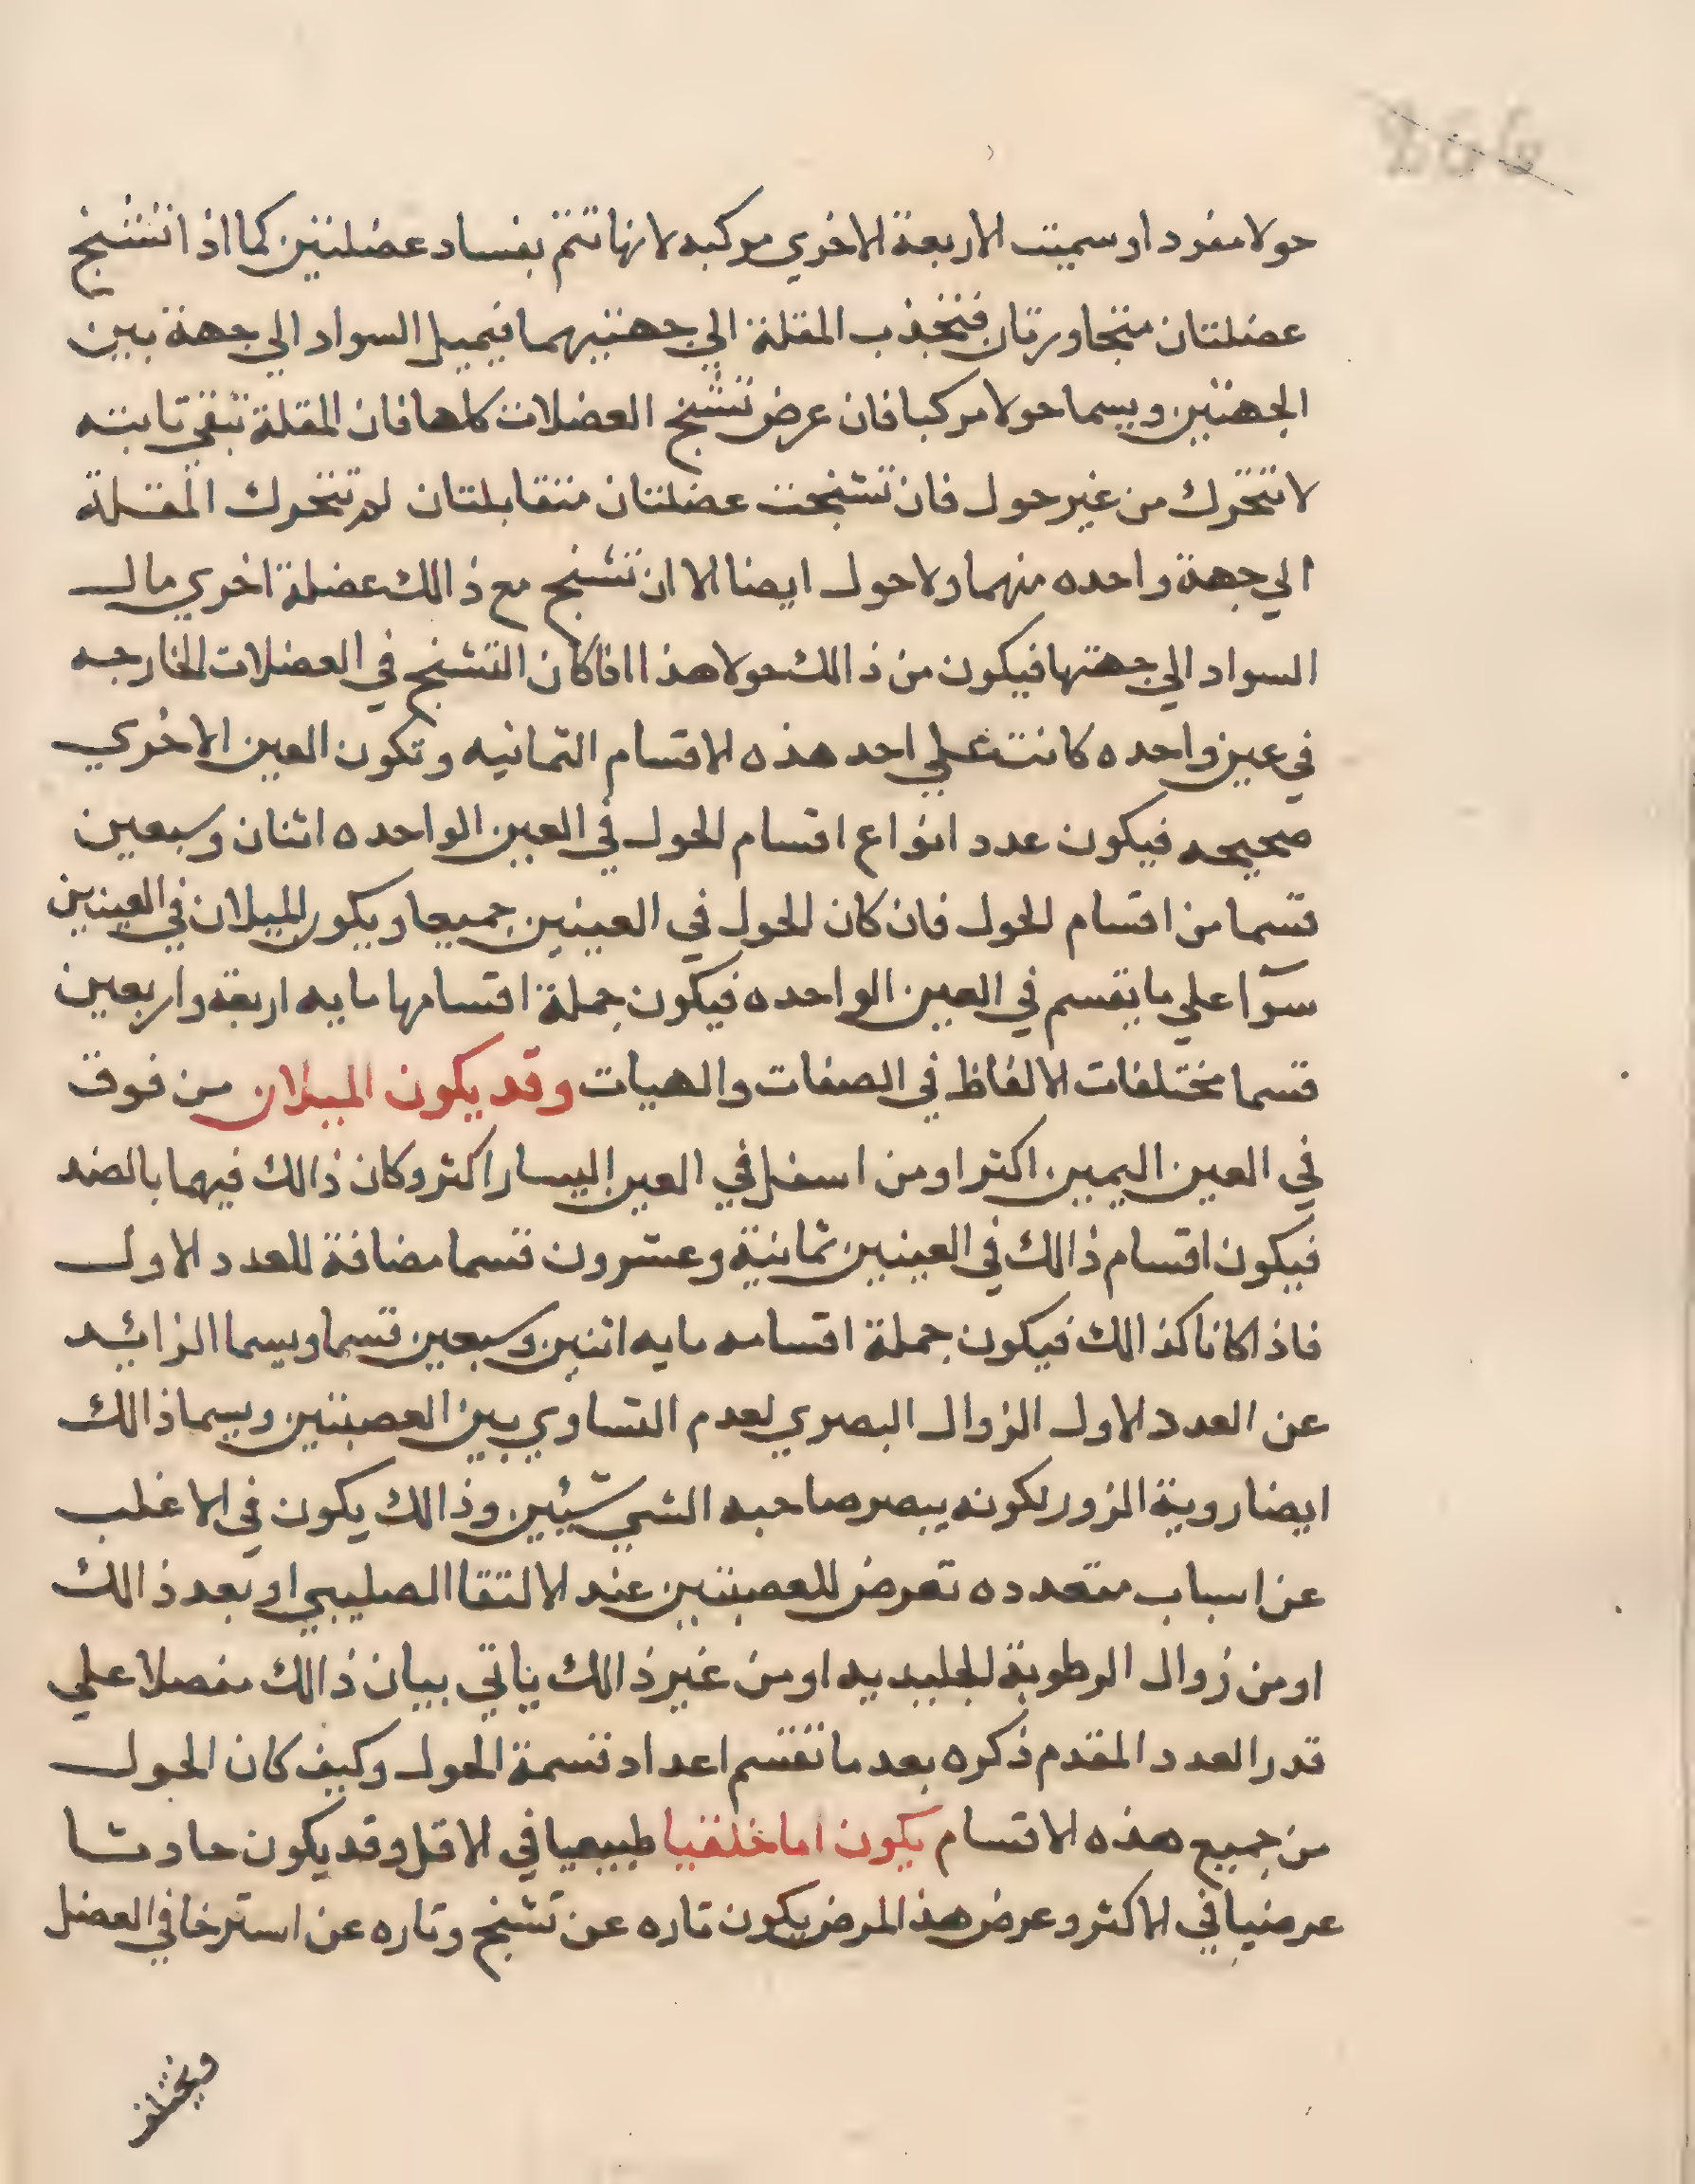 حولا مفردا وسميت الاربعة الاخري مركبه لانها تتم بفساد عضلتين كما اذا تشنج
عضلتان متجاورتان فتنجذب المقلة الي جهتيهما فيميل السواد الي جهة بين
الجهتين ويسما حولا مركبا فان عرض تشنج العضلات كلها فان المقلة تبقي ثابته
لا تتحرك من غير حول فان تشنجت عضلتان متقابلتان لم تتحرك المقلة
الي جهة واحده منهما ولا حول ايضا الا ان تشنج مع ذالك عضلة اخري مال
السواد الي جهتها فيكون من ذالك حولا هذا اذا كان التشنج في العضلات الخارجه
في عين واحده كانت علي احد هذه الاقسام الثمانيه وتكون العين الاخري
صحيحه فيكون عدد انواع اقسام الحول في العين الواحده اثنان وسبعين
قسما من اقسام الحول فان كان الحول في العينين جميعا ويكون الميلان في العينين
سوآا علي ما يقسم في العين الواحده فيكون جملة اقسامها مايه اربعة واربعين
قسما مختلفات الالفاظ في الصفات والهيات وقد يكون الميلان من فوق
في العين اليمين اكثر او من اسفل في العين اليسار اكثر وكان ذالك فيهما بالضد
فيكون اقسام ذالك في العينين ثمانية وعشرون قسما مضافة للعدد الاول
فاذا كانا كذالك فيكون جملة اقسامه مايه اثنين وسبعين قسما ويسما الزائد
عن العدد الاول الزوال البصري لعدم التساوي بين العصبتين ويسما ذالك
ايضا روية المزور لكونه يبصر صاحبه الشي شيئين وذالك يكون في الاغلب
عن اسباب متعدده تعرض للعصبتين عند الالتقا الصليبي او بعد ذالك
او من زوال الرطوبة الجليديه او من غير ذالك ياتي بيان ذالك مفصلا علي
قدر العدد المقدم ذكره بعد ما تقسم اعداد قسمة الحول وكيف كان الحول
من جميع هذه الاقسام يكون اما خلقيا طبيعيا في الاقل وقد يكون حادثا
عرضيا في الاكثر وعرض هذا المرض يكون تاره عن تشنج وتاره عن استرخا في العضل